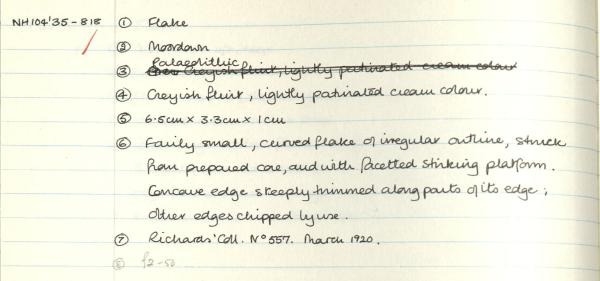 NH104'35-818 ① Flake
② Moordown
Palaeolithic
③ Greyish flint, lightly patinated cream colour
④ Greyish flint, lightly patinated cream colour.
⑤ 6.5cm x 3.3cm x 1cm
⑥ Fairly small, curved flake of irregular outline, struck
from prepared core, and with facetted striking platform.
Concave edge steeply trimmed along parts of its edge;
other edges chipped by use.
⑦ Richards' Coll. Nº 557. March 1920.
⑧ f2-50